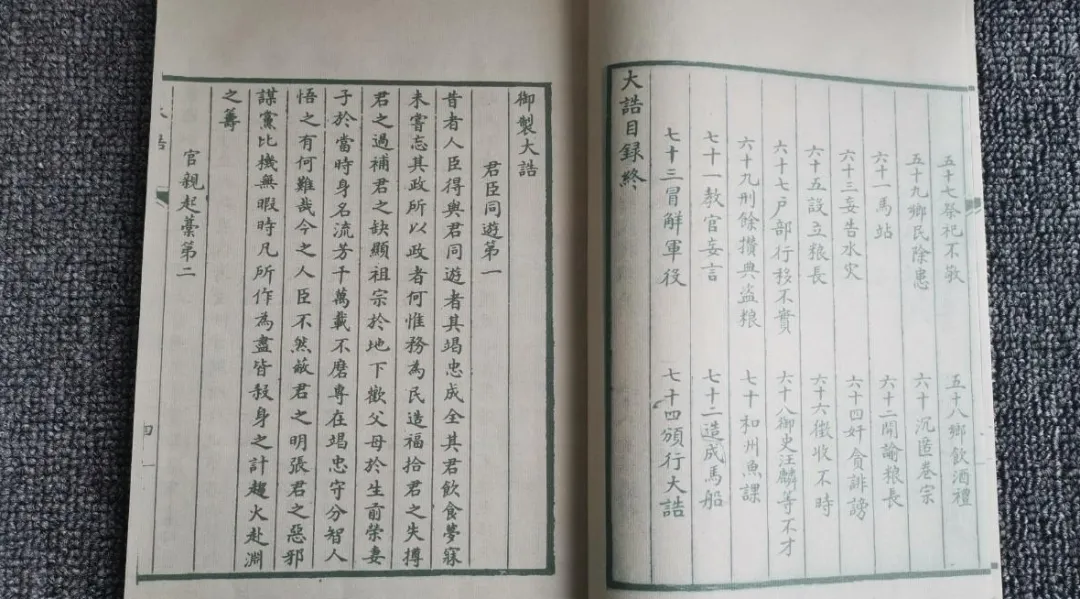 五十七祭祀不敬
五十八鄉飲酒禮
五十九鄉民除患
六十沉匿卷宗
六十一馬站
六十二開諭粮長
六十三妄告水災
六十四奸貪誹謗
六十五設立粮長
六十六徵收不時
六十七戶部行移不實
六十八御史汪麟等不才
六十九刑餘攢典盜粮
七十和州魚課
七十一教官妄言
七十二造成馬船
七十三冒解軍役
七十四頒行大誥
大誥目録終
御製大誥
君臣同遊第一
昔者人臣得與君同遊者其竭忠成全其君飲食夢寐
未嘗忘其政所以政者何惟務為民造福拾君之失撙
君之過補君之缺顯祖宗於地下歡父母於生前榮妻
子於當時身名流芳千萬載不磨專在竭忠守分智人
悟之有何難哉今之人臣不然蔽君之明張君之惡邪
謀黨比機無暇時凡所作為盡皆殺身之計趨火赴淵
之籌
官親起藁第二
大誥
四